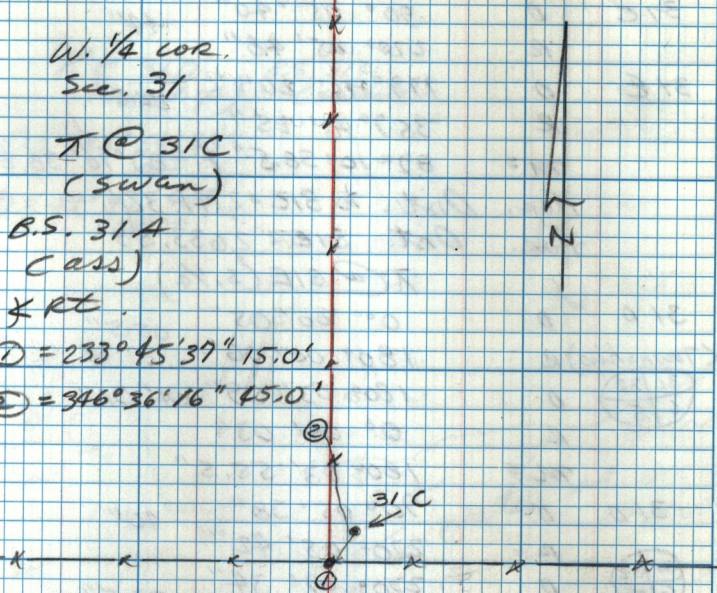 W. 1/4 cor.
Sec. 31
⊼ @ 31C
(swan)
B.S. 31A
(ass)
∡ Rt.
① = 233° 45' 37" 15.0'
② = 346° 36' 16" 45.0'
②
31 C
①
N